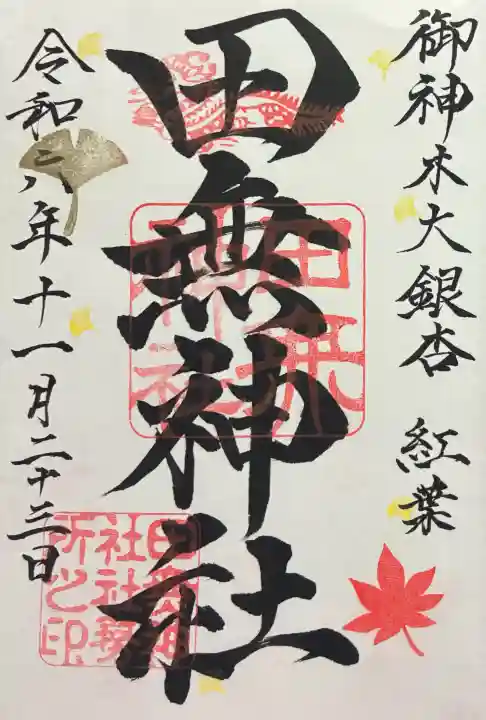 御神木大銀杏 紅葉
田無神社
田无
神社
令和六年十一月二十三日
田無神
社社務
所之印